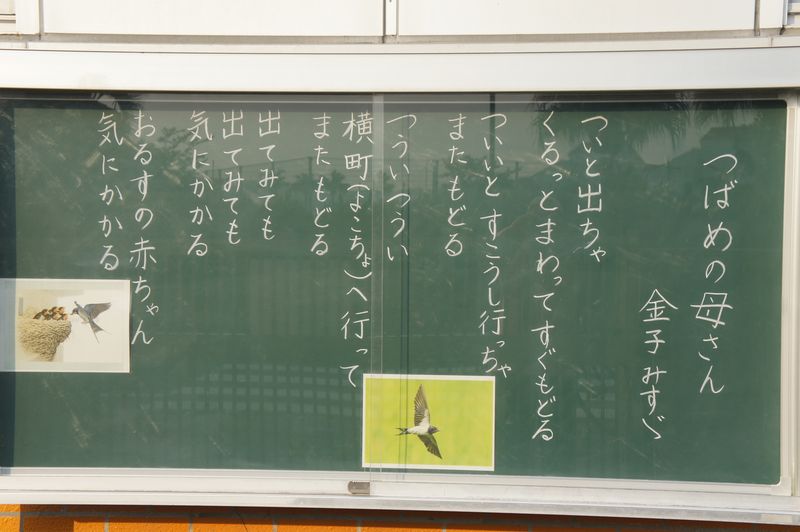 つばめの母さん
金子みすゞ
ついと出ちゃ
くるっとまわってすぐもどる
ついいとすこうし行っちゃ
またもどる
つういつうい
横町(よこちょ)へ行って
またもどる
出てみても
出てみても
気にかかる
おるすの赤ちゃん
気にかかる